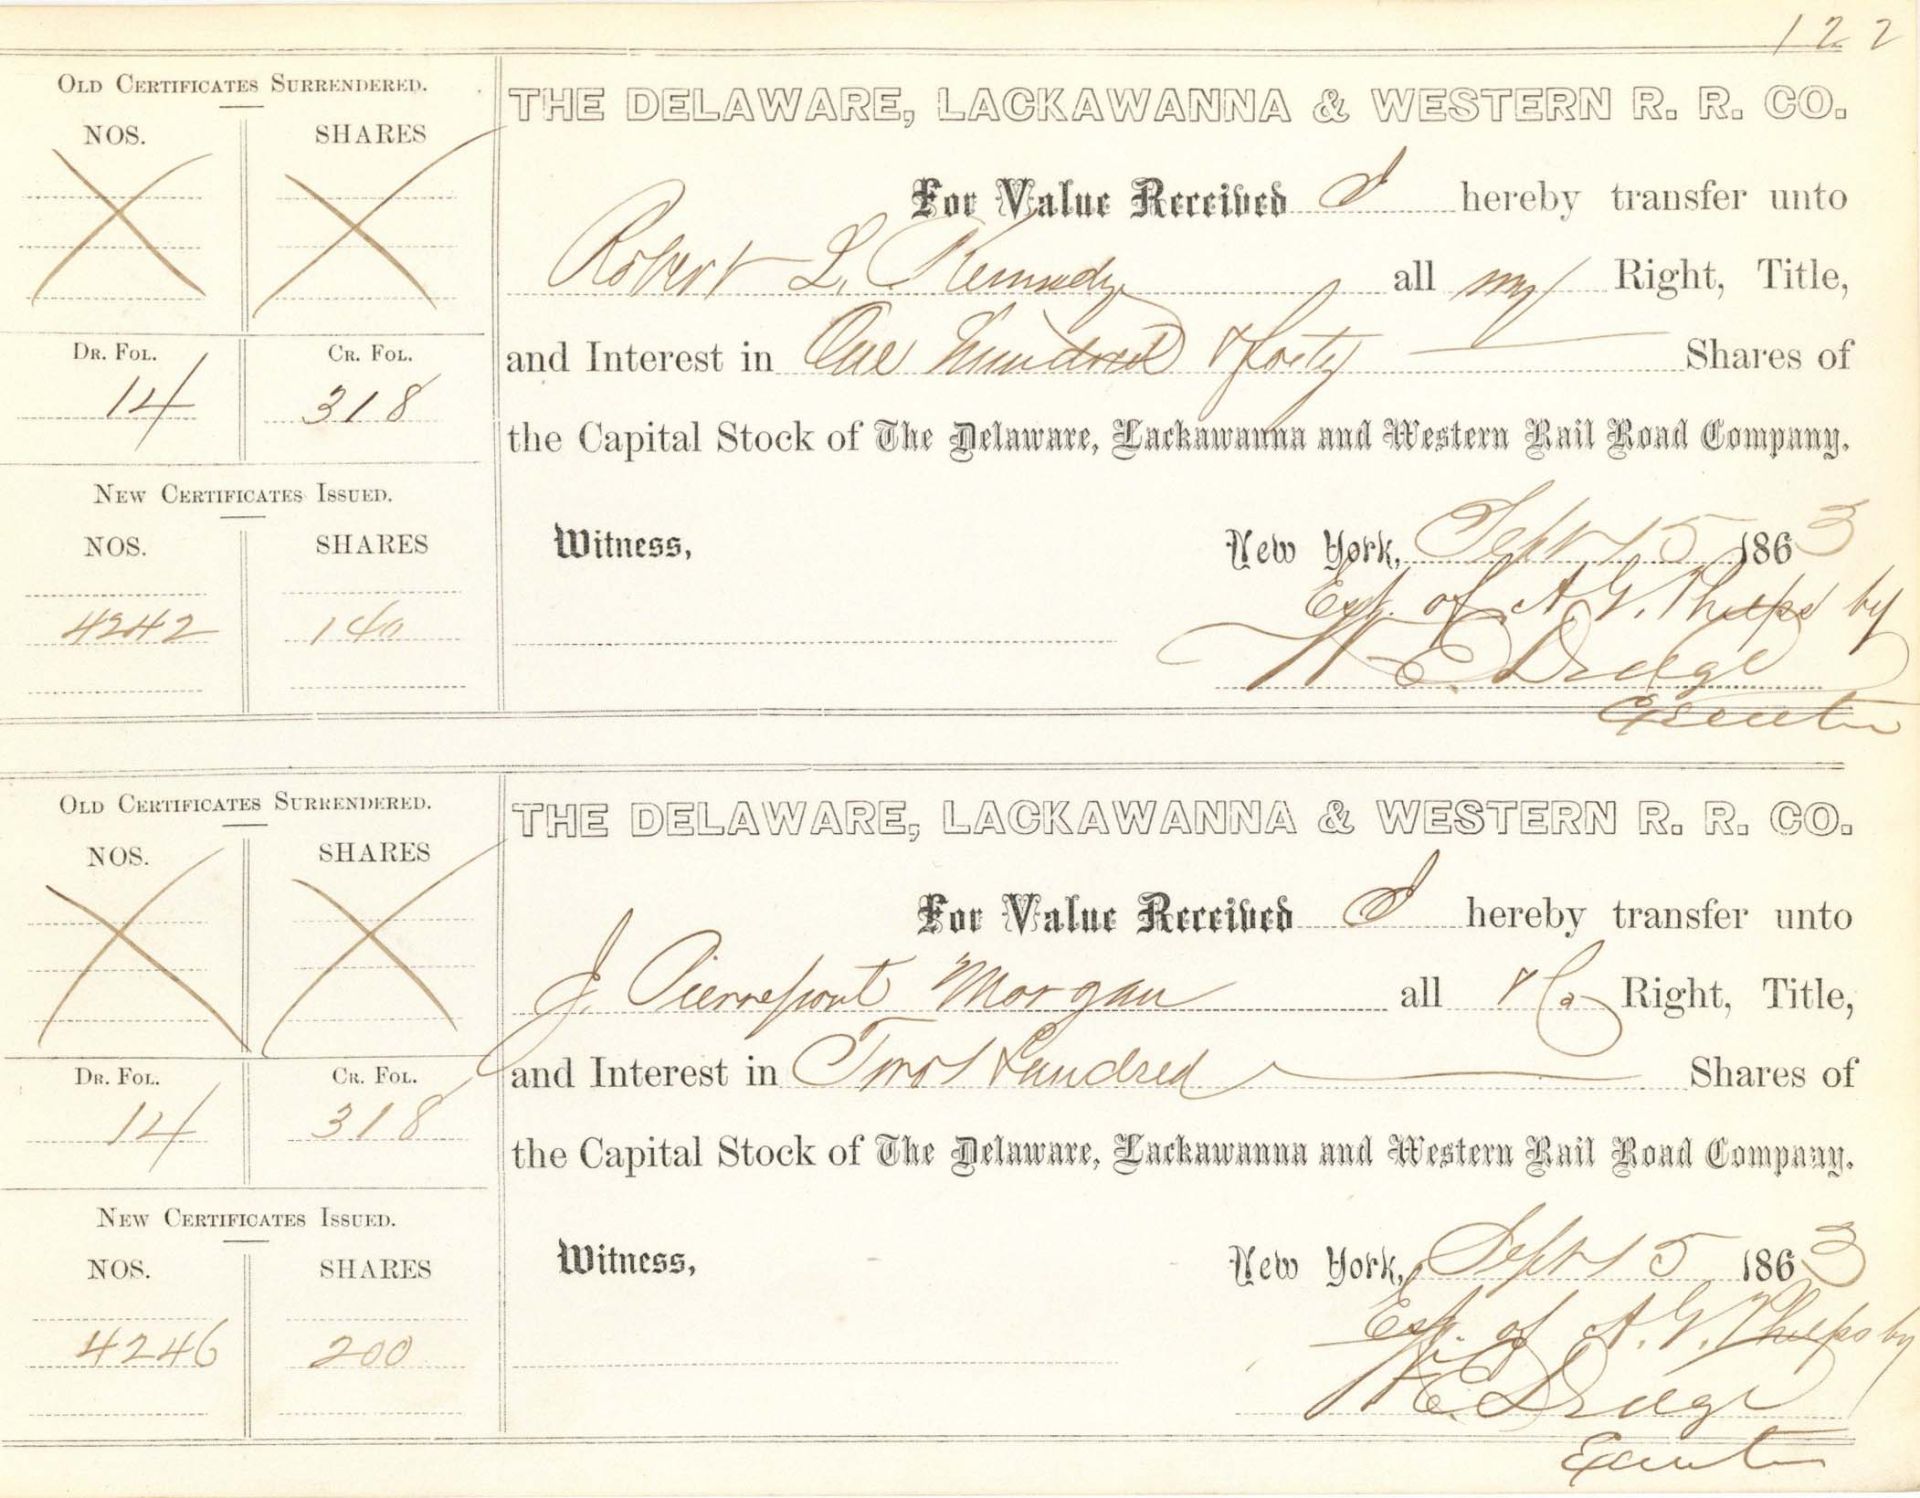 122
OLD CERTIFICATES SURRENDERED.
NOS. SHARES
DR. FOL. CR. FOL.
14 318
NEW CERTIFICATES ISSUED.
NOS. SHARES
4242 140
THE DELAWARE, LACKAWANNA & WESTERN R. R. CO.
For Value Received I hereby transfer unto
Robert L. Kennedy all my Right, Title,
and Interest in One Hundred & forty Shares of
the Capital Stock of The Delaware, Lackawanna and Western Rail Road Company.
Witness, New York, Sept 15 1863
Est. of A. G. Phelps by
W. E. Dodge
Executor
OLD CERTIFICATES SURRENDERED.
NOS. SHARES
DR. FOL. CR. FOL.
14 318
NEW CERTIFICATES ISSUED.
NOS. SHARES
4246 200
THE DELAWARE, LACKAWANNA & WESTERN R. R. CO.
For Value Received I hereby transfer unto
J. Pierrepont Morgan all Right, Title,
and Interest in Two Hundred Shares of
the Capital Stock of The Delaware, Lackawanna and Western Rail Road Company.
Witness, New York, Sept 15 1863
Est. of A. G. Phelps by
W. E. Dodge
Executor